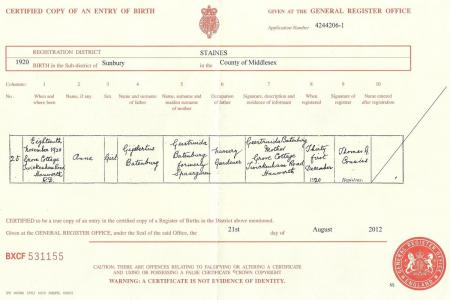 CERTIFIED COPY OF AN ENTRY OF BIRTH
GIVEN AT THE GENERAL REGISTER OFFICE
Application Number 4244206-1
REGISTRATION DISTRICT STAINES
1920 BIRTH in the Sub-district of Sunbury in the County of Middlesex
Columns:- 1 2 3 4 5 6 7 8 9 10
No. When and where born Name, if any Sex Name and surname of father Name, surname and maiden surname of mother Occupation of father Signature, description and residence of informant When registered Signature of registrar Name entered after registration
25 Eighteenth November 1920 Grove Cottage Twickenham Road Hanworth Anne Girl Batenburg Geertruida Batenburg formerly Nursery Gardener Geertruida Batenburg Mother Grove Cottage Twickenham Road Hanworth Thirty first December 1920 Thomas Registrar
CERTIFIED to be a true copy of an entry in the certified copy of a Register of Births in the District above mentioned.
Given at the GENERAL REGISTER OFFICE, under the Seal of the said Office, the 21st day of August 2012
BXCF 531155
CAUTION: THERE ARE OFFENCES RELATING TO FALSIFYING OR ALTERING A CERTIFICATE
AND USING OR POSSESSING A FALSE CERTIFICATE ©CROWN COPYRIGHT
WARNING: A CERTIFICATE IS NOT EVIDENCE OF IDENTITY.
GENERAL REGISTER OFFICE
ENGLAND